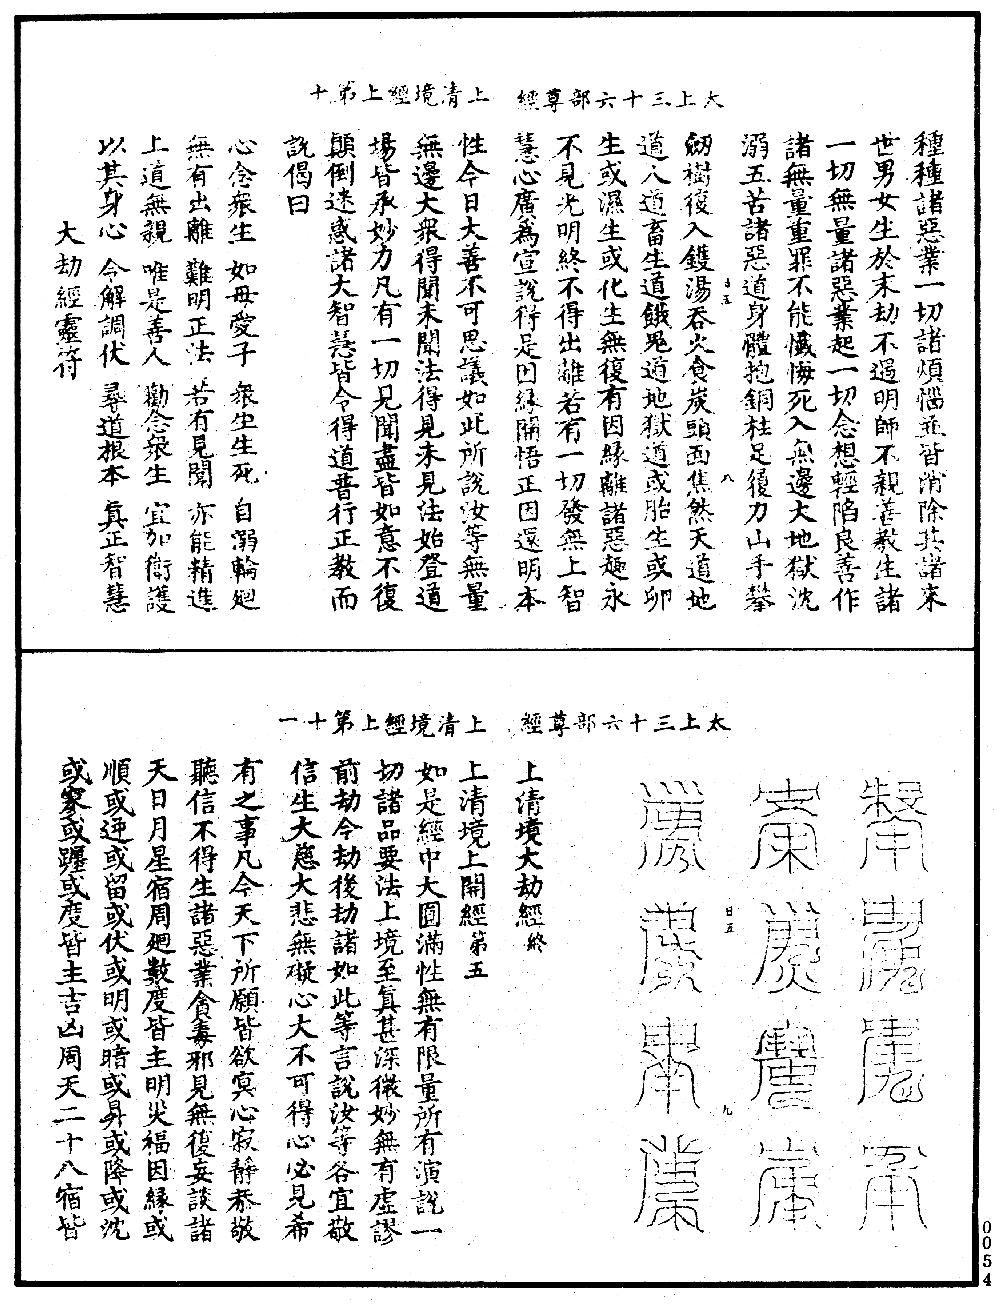 太上三十六部尊經　上清境經上第十
種種諸惡業一切諸煩惱並皆消除其諸來
世男女生於末劫不遇明師不親善教生諸
一切無量諸惡業起一切念想輕陷良善作
諸無量重罪不能懺悔死入無邊大地獄沈
溺五苦諸惡道身體抱銅柱足履刀山手攀
劒樹復入鑊湯吞火食炭頭面焦然天道地
道人道畜生道餓鬼道地獄道或胎生或卵
生或濕生或化生無復有因緣離諸惡趣永
不見光明終不得出離若有一切發無上智
慧心廣為宣說得是因緣開悟正因還明本
性今日大善不可思議如此所說汝等無量
無邊大衆得聞未聞法得見未見法始登道
場皆承妙力凡有一切見聞盡皆如意不復
顛倒迷惑諸大智慧皆令得道普行正教而
說偈曰
心念衆生　如母愛子　衆生生死　自溺輪廻
無有出離　難明正法　若有見聞　亦能精進
上道無親　唯是善人　勸念衆生　宜加衛護
以其身心　令解調伏　尋道根本　真正智慧
大劫經靈符
八
太上三十六部尊經　上清境經上第十一
九
上清境大劫經終
上清境上開經第五
如是經中大圓滿性無有限量所有演說一
切諸品要法上境至真甚深微妙無有虛謬
前劫今劫後劫諸如此等言說汝等各宜敬
信生大慈大悲無礙心大不可得心必見希
有之事凡今天下所願皆欲冥心寂靜恭敬
聽信不得生諸惡業貪毒邪見無復妄談諸
天日月星宿周廻數度皆主明災福因緣或
順或逆或留或伏或明或暗或昇或降或沈
或冢或躔或度皆主吉凶周天二十八宿皆
0054